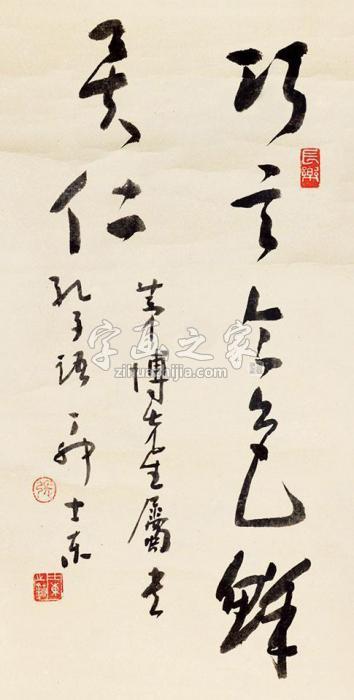 巧言令色鲜
矣仁
孔子语 士东
博先生属书
字画之家
zihuazhijia.com